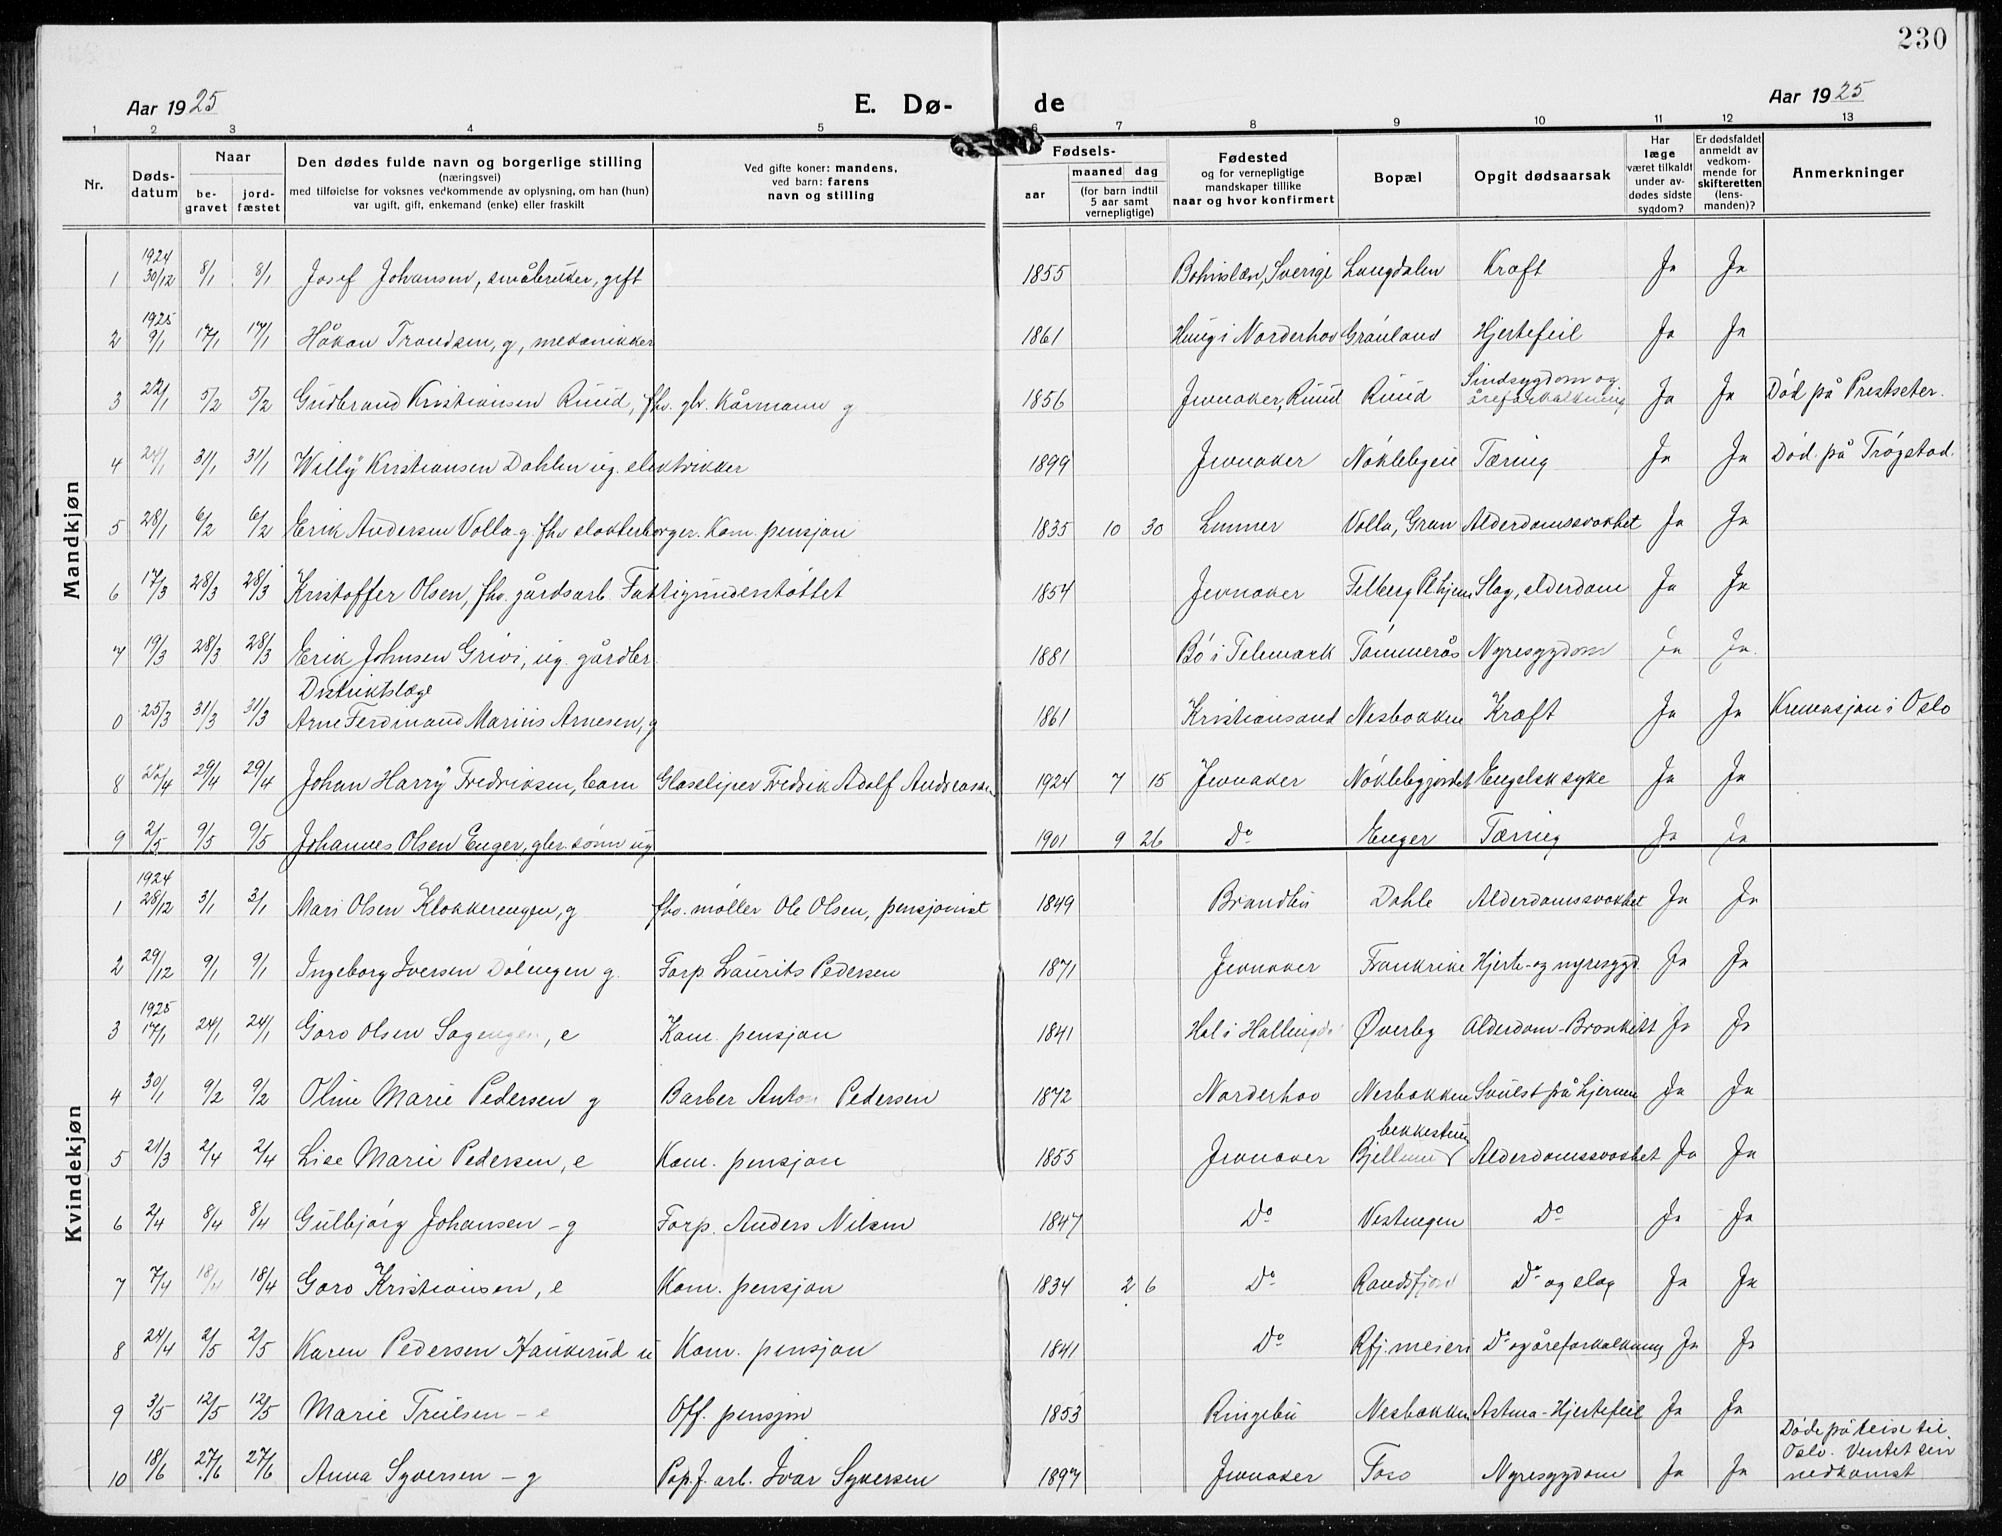 230
Aar 1925 E. Dø- de Aar 1925
1 2 3 4 5 6 7 8 9 10 11 12 13
Nr. Dødsdatum Naar begravet jordfæstet
Den dødes fulde navn og borgerlige stilling
(næringsvei)
med tilføielse for voksnes vedkommende av oplysning, om han (hun)
var ugift, gift, enkemand (enke) eller fraskilt
Ved gifte koner: mandens,
ved barn: farens
navn og stilling
Fødsels-
aar maaned dag
(for barn indtil
5 aar samt
vernepligtige)
Fødested
og for vernepligtige
mandskaper tillike
naar og hvor konfirmert
Bopæl
Opgit dødsaarsak
Har
læge
været tilkaldt
under av-
dødes sidste
sygdom?
Er dødsfaldet
anmeldt av
vedkom-
mende for
skifteretten
(lens-
manden)?
Anmerkninger
Mandkjøn
1 1924 30/12 8/1 8/1 Josef Johansen, småbruker, gift 1855 Bohuslæn, Sverige Langdalen Kræft Ja Ja
2 1925 9/1 17/1 17/1 Håkon Trondsen, g, mekanikker 1861 Haug i Norderhov Grønland Hjertefeil Ja Ja
3 22/1 5/2 5/2 Gudbrand Kristiansen Ruud, fhv. gbr. Kårmann g 1856 Jevnaker, Ruud Ruud Sindsygdom og åreforkalkning Ja Ja Død på Prestseter.
4 24/1 31/1 31/1 Willy Kristiansen Dahlen ug. elektrikker 1899 Jevnaker Nøklebyeie Tæring Ja Ja Død på Trøgstad.
5 28/1 6/2 6/2 Erik Andersen Volla g. fhv slakterborger. Kom. pensjon 1835 10 30 Lunner Volla, Gran Alderdomssvakhet Ja Ja
6 17/3 28/3 28/3 Kristoffer Olsen, fhv. gårdsarb. Fattigunderstøttet 1854 Jevnaker Felberg Pl.hjem Slag, alderdom Ja Ja
7 19/3 28/3 28/3 Erik Johnsen Grivi, ug. gårdbr. 1881 Bø i Telemark Tømmerås Nyresygdom Ja Ja.
0 25/3 31/3 31/3 Distriktslæge Arne Ferdinand Marius Arnesen, g 1861 Kristiansand Nesbakken Kræft Ja Ja Kremasjon i Oslo
8 /4 29/4 29/4 Johan Harry Fredriksen, barn Glassliper Fredrik Adolf Andreassen 1924 7 15 Jevnaker Nøklebyjordet Engelsk syke Ja Ja
9 2/5 9/5 9/5 Johannes Olsen Enger, gbr. sønn ug 1901 9 26 Do Enger Tæring Ja Ja
Kvindekjøn
1 1924 28/12 3/1 3/1 Mari Olsen Klokkerengen, g fhv. møller Ole Olsen, pensjonist 1849 Brandbu Dahle Alderdomssvakhet Ja Ja
2 29/12 9/1 9/1 Ingeborg Iversen Dølengen g. Forp. Laurits Pedersen 1871 Jevnaker Frankrike Hjerte- og nyresygd. Ja Ja
3 1925 17/1 24/1 24/1 Goro Olsen Sagengen, e Kom. pensjon 1841 Hol i Hallingda Øverby Alderdom - Bronkitt Ja Ja
4 30/1 9/2 9/2 Oline Marie Pedersen g Barber Anton Pedersen 1872 Norderhov Nesbakken Svulst på hjernen Ja Ja
5 21/3 2/4 2/4 Lise Marie Pedersen, e Kom. pensjon 1855 Jevnaker Bjellum bekkestuen Alderdomssvakhet Ja Ja
6 2/4 8/4 8/4 Gulbjørg Johansen - g Forp. Anders Nilsen 1847 Do Vestengen Do Ja Ja
7 7/4 18/4 18/4 Goro Kristiansen, e Kom. pensjon 1834 2 6 Do Randsfjord Do og slag Ja Ja
8 24/4 2/5 2/5 Karen Pedersen Haukerud u Kom. pensjon 1841 Do Rfj. meieri Do og åreforkalkning Ja Ja
9 3/5 12/5 12/5 Marie Trulsen - e Off. pensjon 1853 Ringebu Nesbakken Astma - Hjertefeil Ja Ja
10 18/6 27/6 27/6 Anna Syversen - g Pap.f. arb. Ivar Syversen 1897 Jevnaker Foso Nyresygdom Ja Ja Døde på reise til Oslo. Ventet sin nedkomst